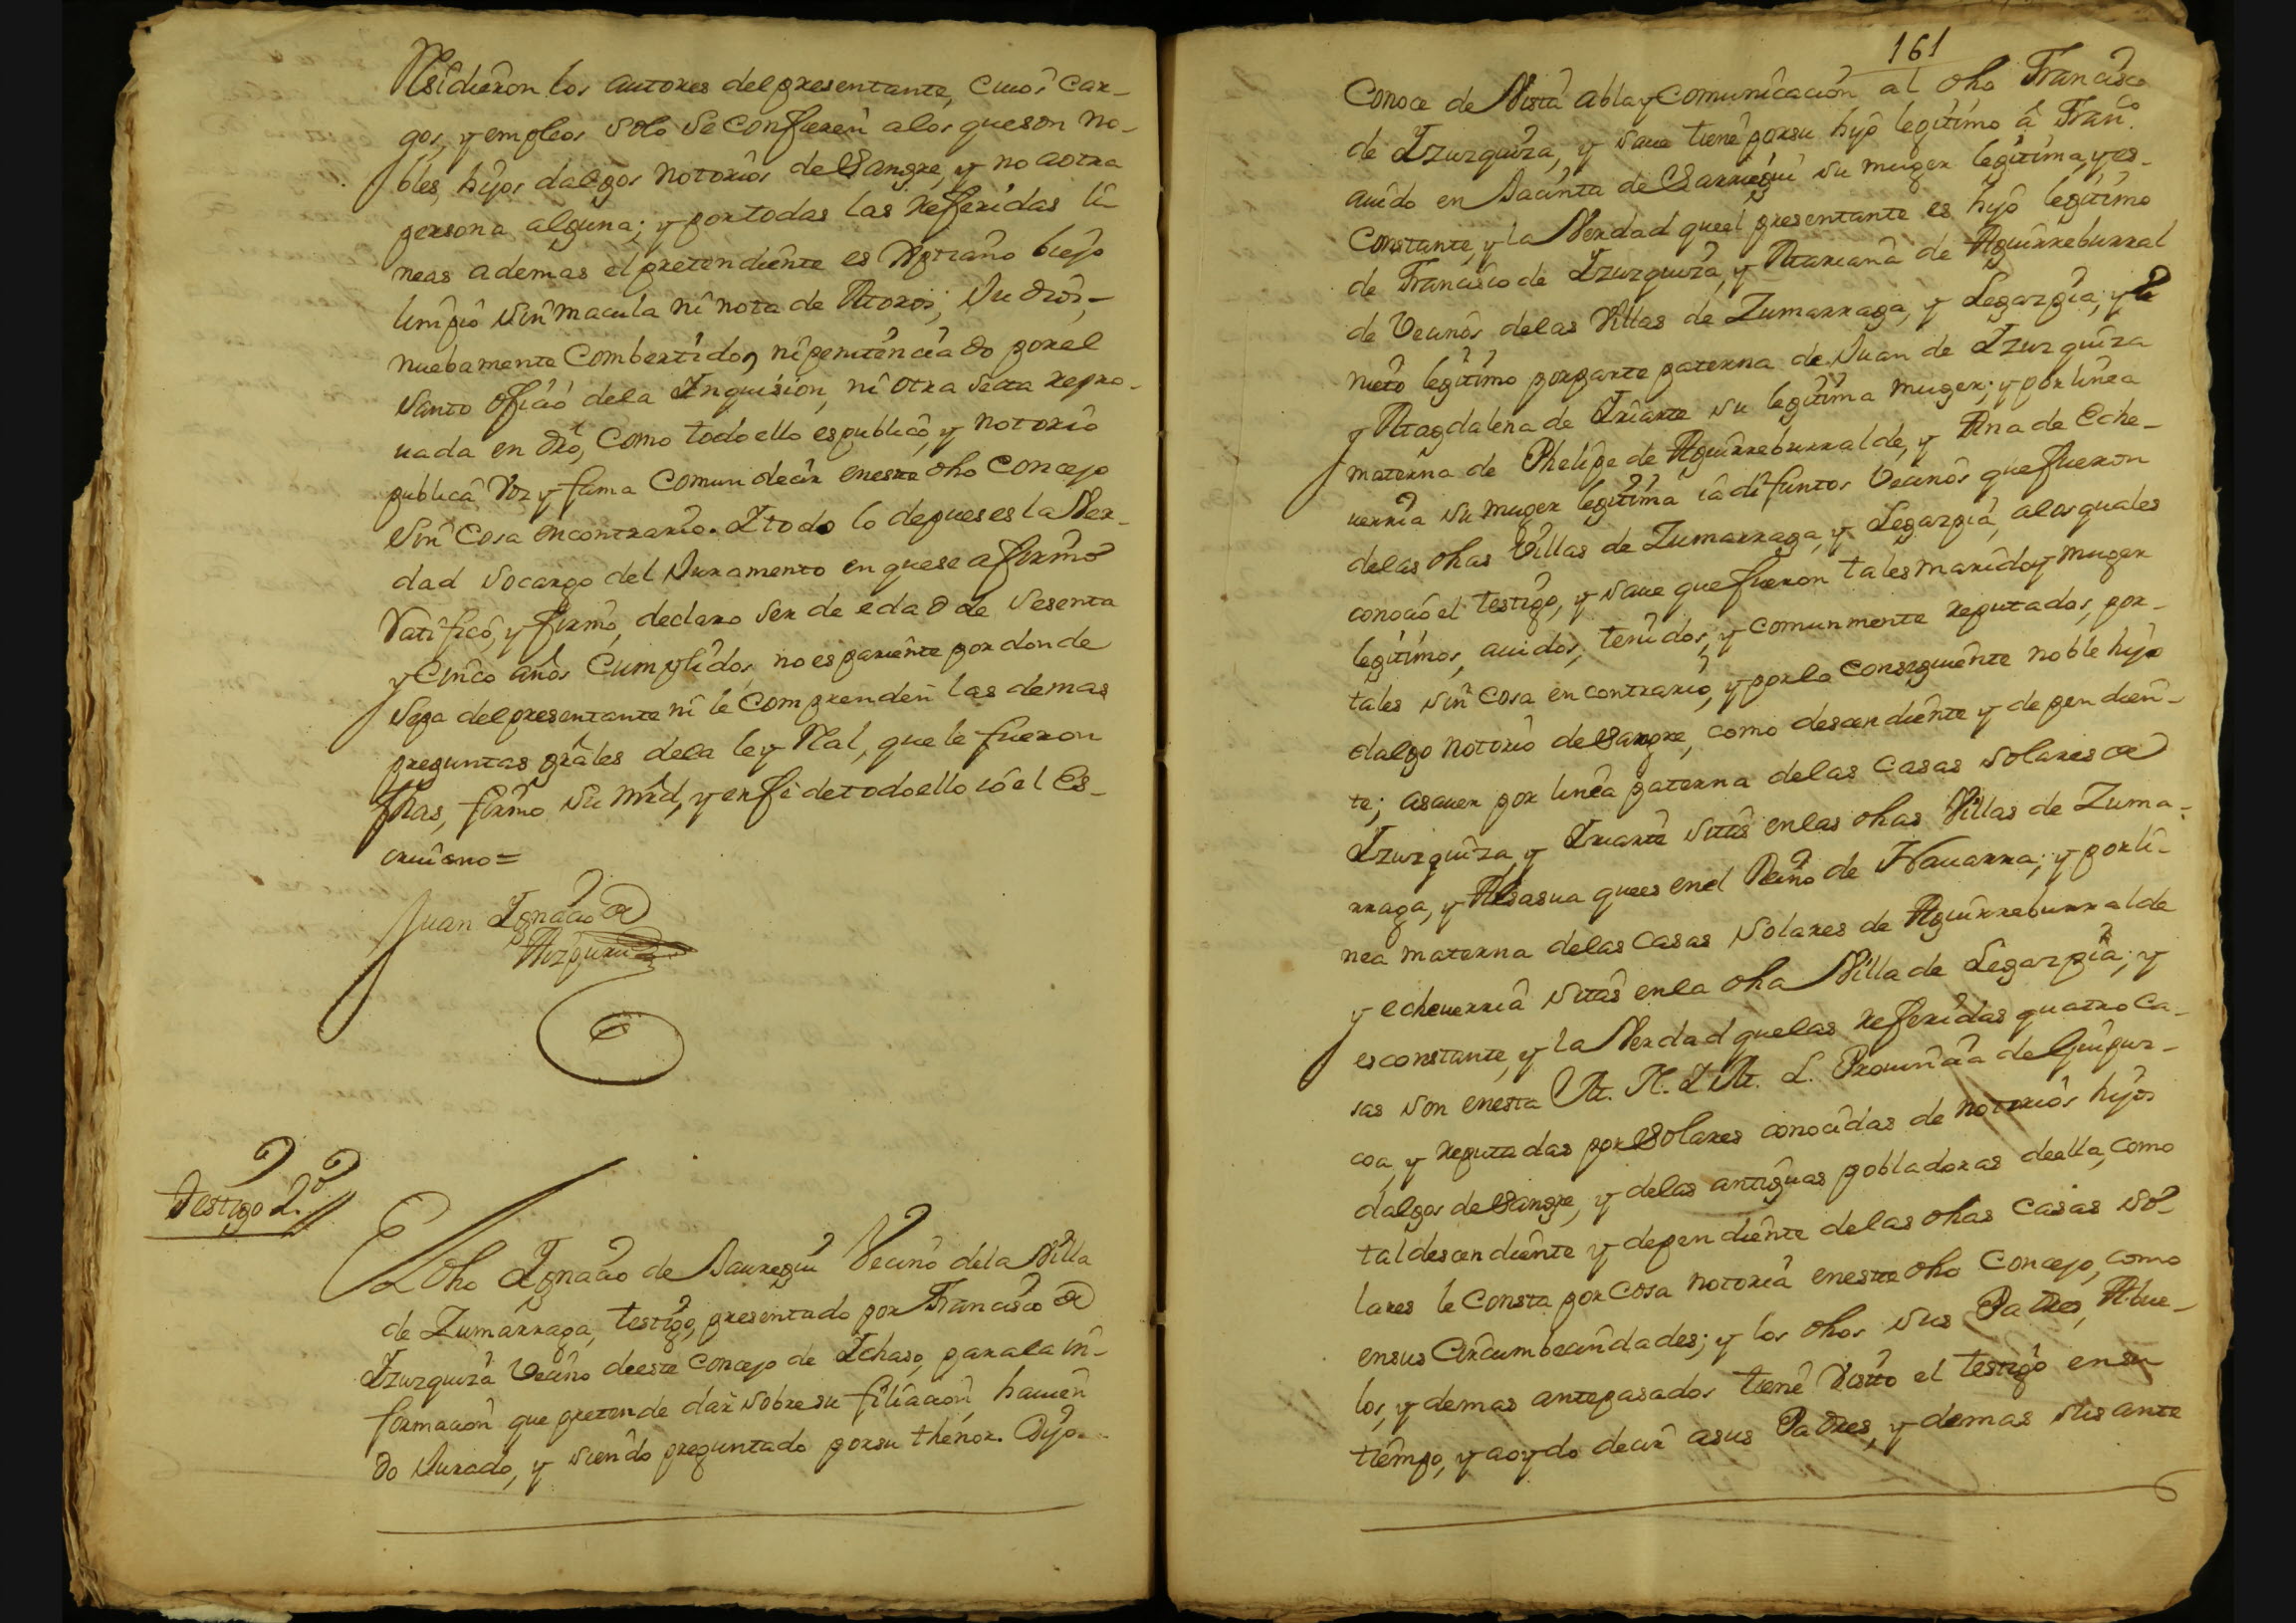 Residieron los autores del presentante, cuios car-
gos, y empleos solo se confieren a los que son no-
bles, hijos dalgos notorios de Sangre, y no aotra
persona alguna; y por todas las referidas li-
neas ademas el pretendiente es Xptiano biejo
limpio sin macula ni nota de Moros, Judios,-
nuebamente combertidos, ni penitenciado por el
Santo oficio dela Inquision, ni otra secta repro-
uada en dro, Como todo ello es publico, y notorio
publica voz y fama comun decir en este dho Concejo
sin cosa en contrario. I todo lo depues es la Ver-
dad socargo del Juramento en que se afirmó
Ratificó, y firmó, declaro ser de edad de sesenta
y cinco años cumplidos, no es pariente por donde
sepa del presentante ni le comprenden las demas
preguntas grāles dela ley Rāl, que le fueron
fhas, firmó su mrd, y en fe de todo ello ió el Es-
criuano=
Juan Ignacio de
Aizpuru
Testigo 2.º
El dho Ignacio de Jauregui Vecino dela Villa
de Zumarraga, testigo, presentado por Francisco de
Izurquiza Vecino de este Concejo de Ichaso, para la in-
formacion que pretende dar sobre su filiacion, hauien
do Jurado, y siendo preguntado por su thenor. Dijo
161
Conoce de Vista abla y Comunicacion al dho Francisco
de Izurquiza, y saue tiene por su hijo legitimo à Fran.co
auido en Jacinta de Sarriegui su muger legitima, y es-
Constante, y la Verdad que el presentante es hijo legitimo
de Francisco de Izurquiza, y Mariana de Aguirreburral
de Vecinos delas Villas de Zumarraga, y Legazpia; y
nieto legitimo por parte paterna de Juan de Izurquiza
y Magdalena de Iriarte su legitima muger; y por linea
materna de Phelipe de Aguirreburralde, y Ana de Eche-
uerria su muger legitima ia difuntos Vecinos que fueron
delas dhas Villas de Zumarraga, y Legazpia, alos quales
conoció el testigo, y saue que fueron tales marido y muger
legitimos, auidos, tenidos, y comunmente reputados, por-
tales sin cosa en contrario, y por lo conseguiente noble hijo
dalgo notorio de Sangre, como descendiente y dependien-
te; asauer por linea paterna delas Casas Solares de
Izurquiza, y Iriarte sitas en las dhas Villas de Zuma-
rraga, y Alsasua que es en el Reino de Nauarra; y por li-
nea materna delas Casas Solares de Aguirreburralde
y echeuerria sitas en la dha Villa de Legazpia; y
es constante, y la Verdad que las referidas quatro Ca-
sas son en esta M. N. I M. L. Prouincia de Guipuz-
coa, y reputadas por Solares conocidas de notorios hijos
dalgos de Sangre, y delas antiguas pobladoras de ella, como
tal descendiente y dependiente delas dhas Casas So-
lares le consta por cosa notoria en este dho Concejo, como
en sus Circumbecindades; y los dhos sus Padres, Abue-
los, y demas antepasados tiene Visto el testigo en su
tiempo, y aoydo decir asus Padres, y demas sus ante